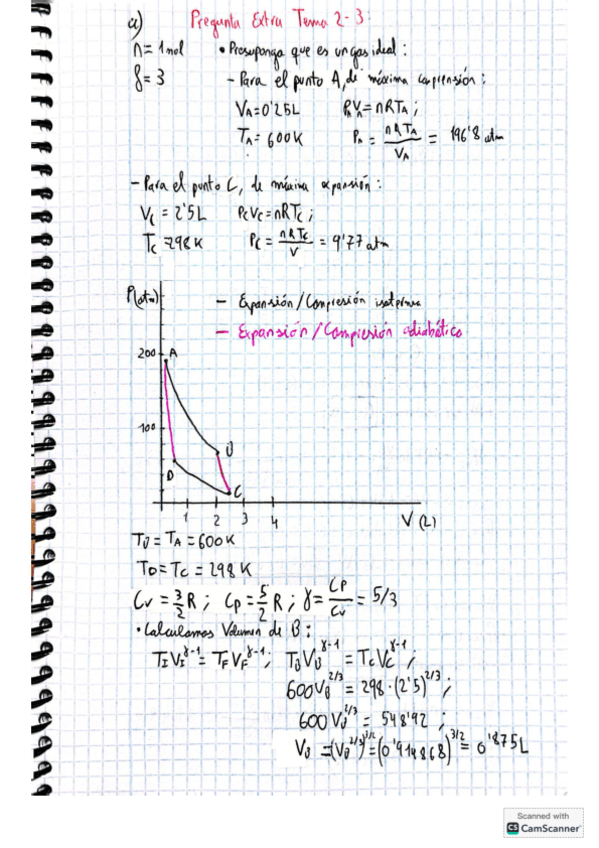 a) Pregunta Extra Tema 2-3:
n = 1 mol • Presuponga que es un gas ideal:
f = 3 - Para el punto A, de máxima compresión:
V_A = 0'25L P_A V_A = nRT_A;
T_A = 600K P_A = nRT_A / V_A = 196'8 atm
- Para el punto C, de máxima expansión:
V_C = 2'5L P_C V_C = nRT_C;
T_C = 298K P_C = nRT_C / V = 9'77 atm
P(atm) - Expansión/Compresión isoterma
- Expansión/Compresión adiabática
200 A
100
B
D
C
1 2 3 4 V (L)
T_B = T_A = 600K
T_D = T_C = 298 K
C_V = 3/2 R; C_P = 5/2 R; γ = C_P / C_V = 5/3
• Calculamos Volumen de B:
T_I V_I^γ-1 = T_F V_F^γ-1; T_B V_B^γ-1 = T_C V_C^γ-1;
600 V_B^2/3 = 298·(2'5)^2/3;
600 V_B^2/3 = 548'92;
V_B = (V_B^2/3)^3/2 = (0'914868)^3/2 = 0'875L
Scanned with
CS CamScanner